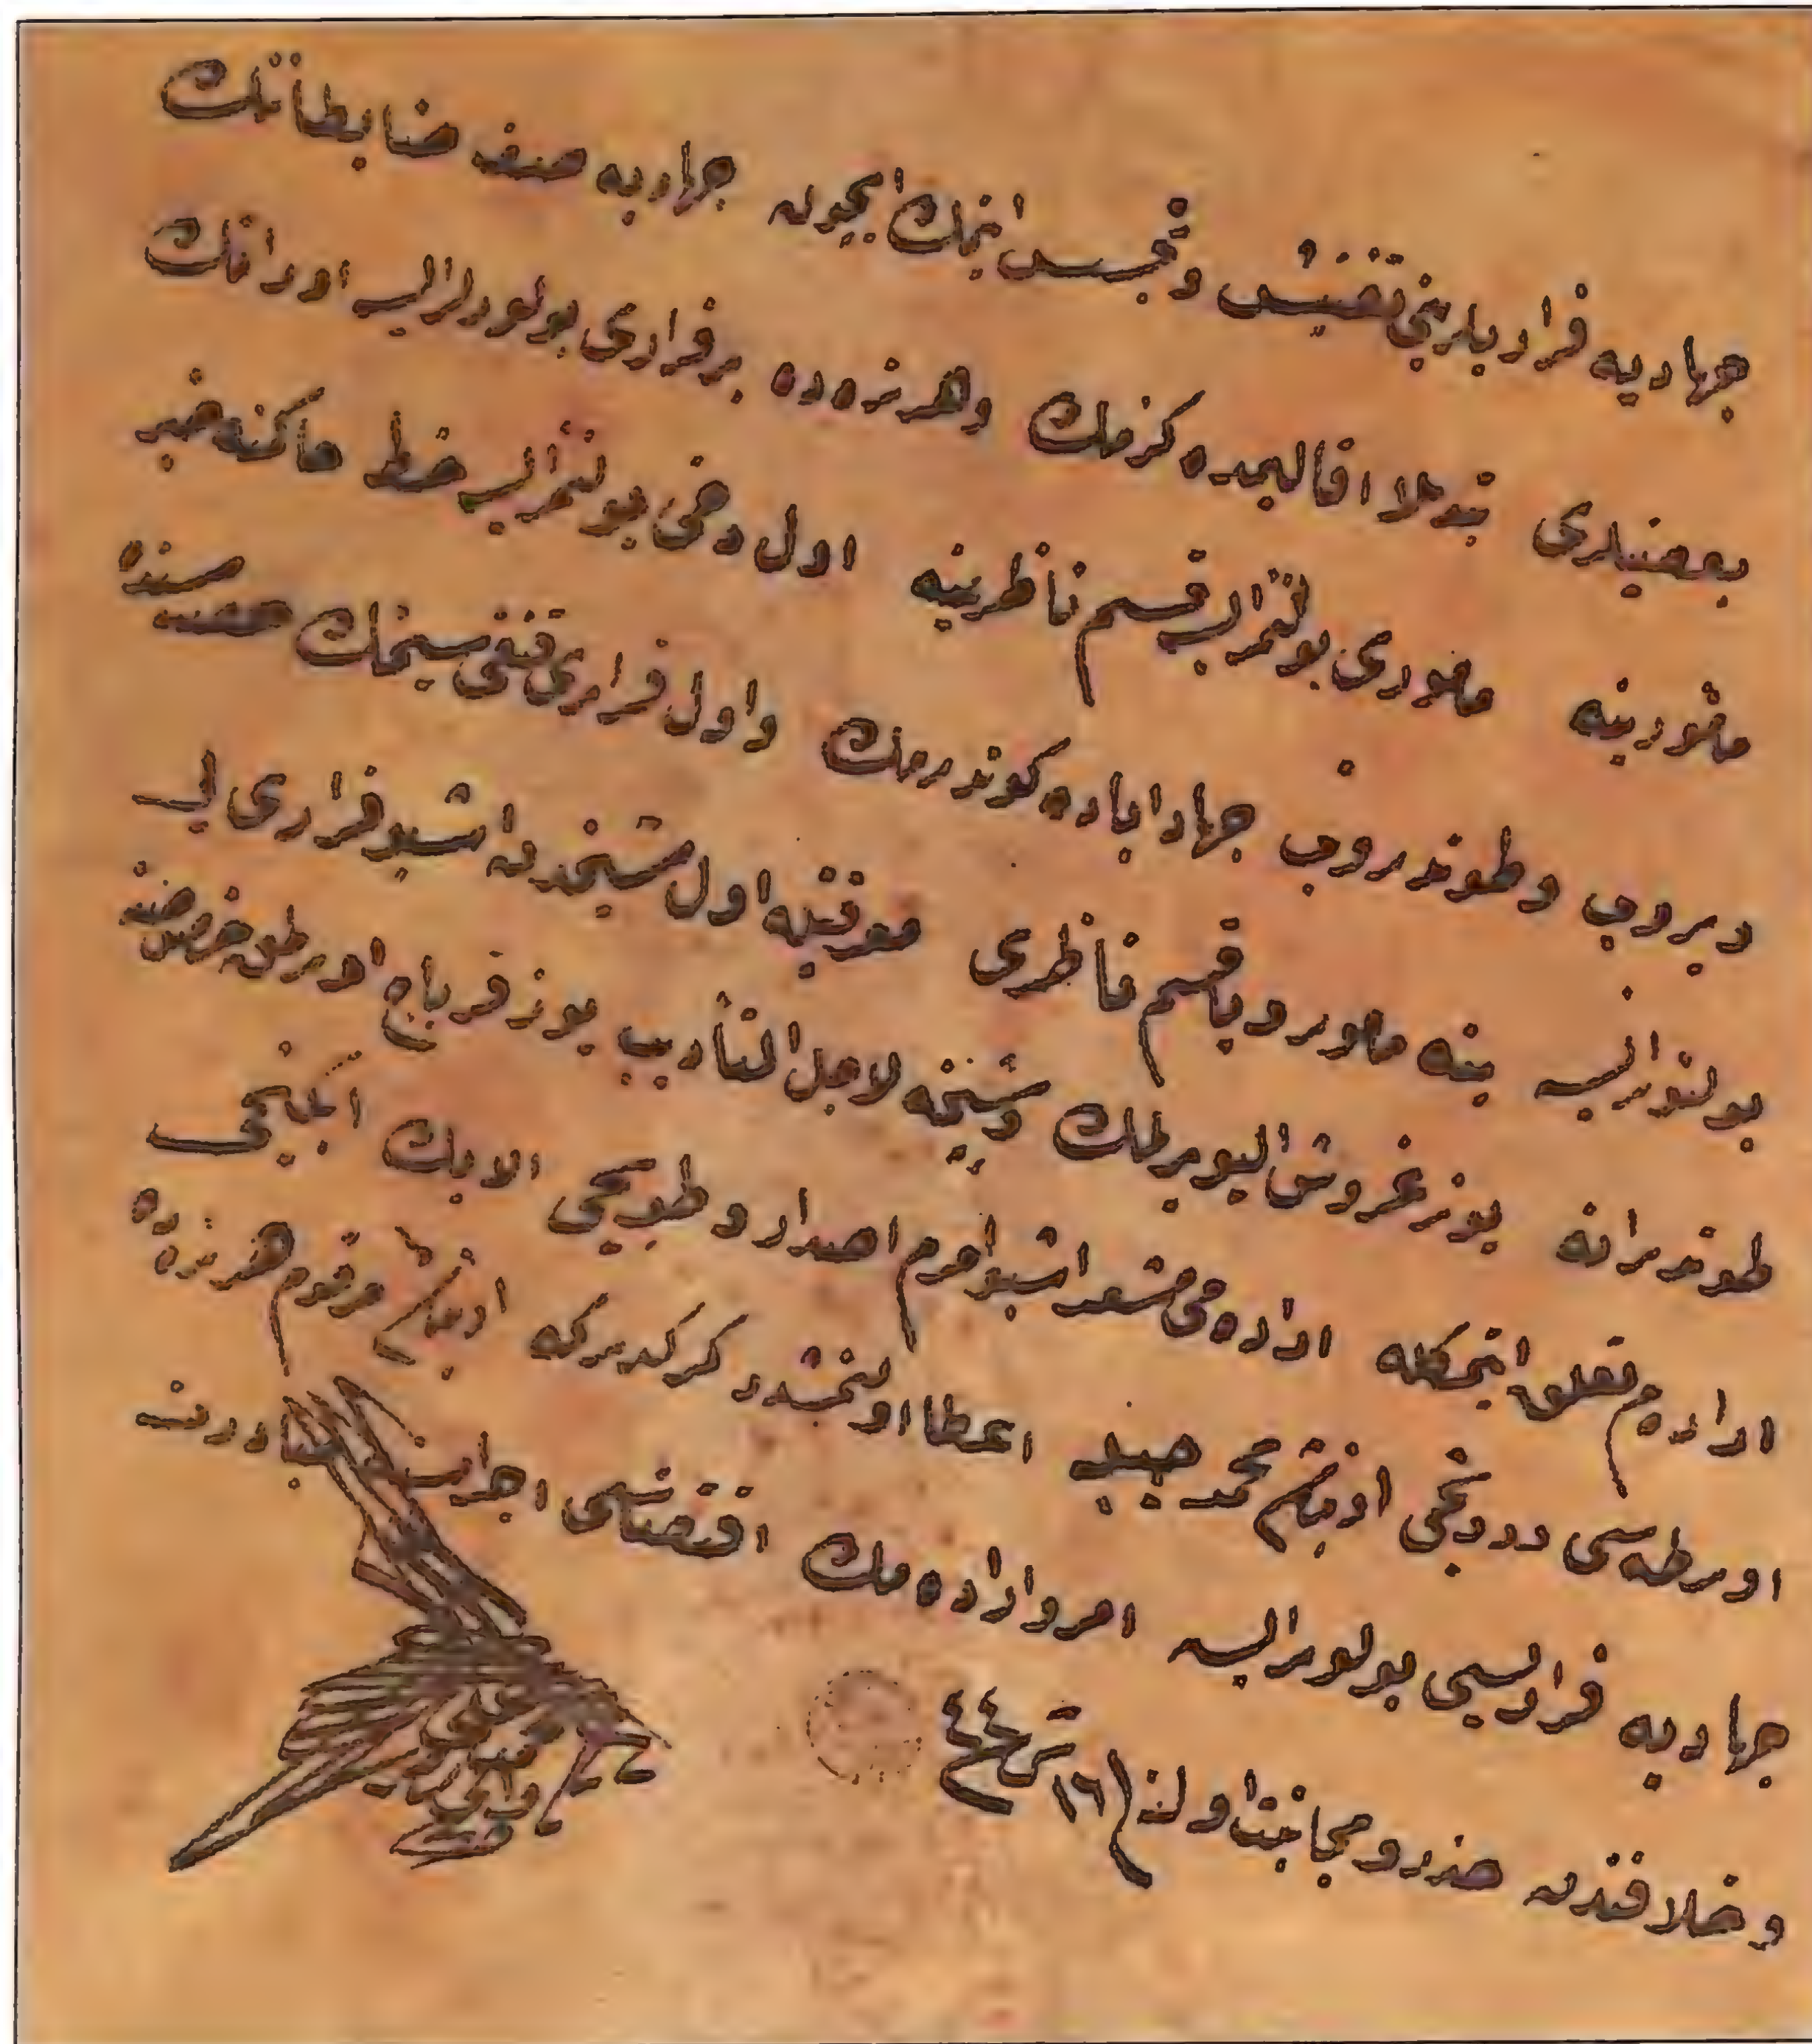 جهاديه فراريلريني تفتيش وتجسس ايتمك ايچون جهاديه صنف ضابطاننك
بعضيلرى تبديلا اقاليمده كزمك وهر نره ده بر فرارى بولورلر ايسه اورانك
مأمورينه مأمورى بولنمز ايسه قسم ناظرينه اول دخى بولنمز ايسه خط حاكمنه خبر
ويروب وطوتدروب جهاداباده كوندرمك واول فرارى قنغى شيخك حصه سنده
بولنور ايسه ينه مأمور ويا قسم ناظرى معرفتيله اول شيخدن اشبو فرارى يى
طوتدرانه يوز غروش اليويرمك وشيخه لاجل التأديب يوز قرباج اورلمق خصوصنه
ارادم تعلق ايتمكله اراده مى مشعر اشبو امرم اصدار وطوبجى الاينك ايكنجى
اورطه سى دردنجى اونباشيسى محمد حبيبه اعطا اولنمشدر كركدركه اونباشى مرقوم هر نره ده
جهاديه فراريسى بولور ايسه امر واراده مك اقتضاسى اجراسنه مبادرت
وخلافندن حذر ومجانبت اولنه ١٦ ش ٤٤